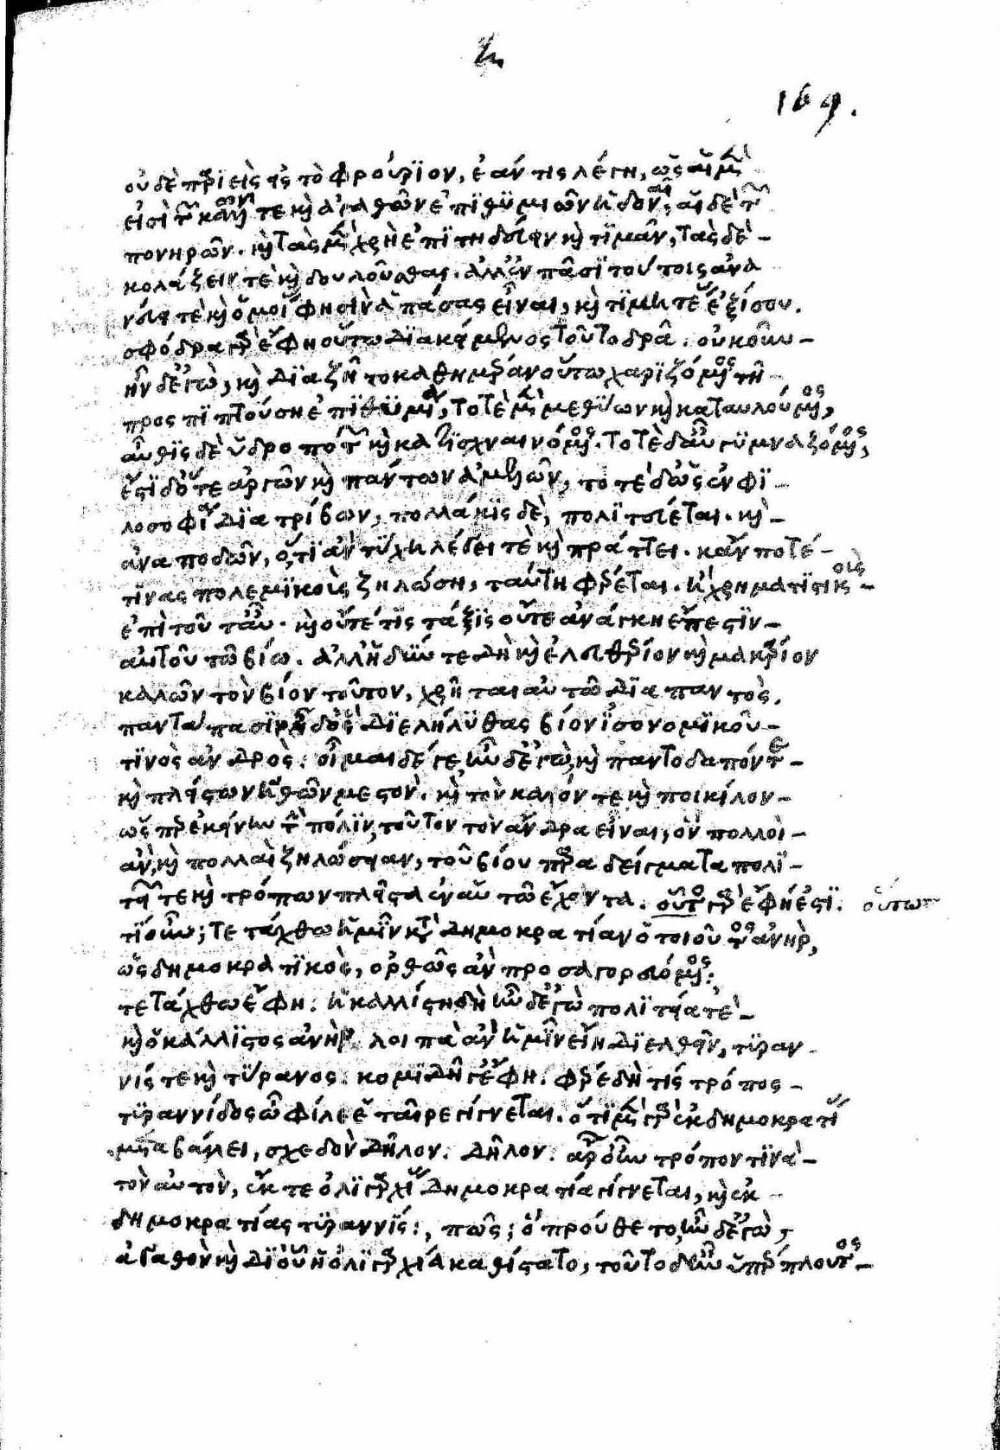 169.
οὐδὲ παριεὶς εἰς τὸ φρούριον, ἐάν τις λέγη, ὡς αἱ μὲν
εἰσὶ τῶν καλῶν τε καὶ ἀγαθῶν ἐπιθυμιῶν ἡδοναὶ, αἱ δὲ τῶν
πονηρῶν. καὶ τὰς μὲν χρὴ ἐπιτηδεύειν καὶ τιμᾶν, τὰς δὲ
κολάζειν τε καὶ δουλοῦσθαι. ἀλλ' ἐν πᾶσι τούτοις ἀνα
νεύει τε καὶ ὁμοίας φησὶν ἁπάσας εἶναι, καὶ τιμητέας ἐξίσου.
σφόδρα γὰρ ἔφη οὕτω διακείμενος τοῦτο δρᾶ. οὐκοῦν
ἦν δ' ἐγὼ, καὶ διαζῆ τὸ καθημέραν οὕτω χαριζόμενος τῆ
προσπιπτούση ἐπιθυμία, τοτὲ μὲν μεθύων καὶ καταυλούμενος,
αὖθις δὲ ὑδροποτῶν καὶ κατισχναινόμενος. τοτὲ δ' αὖ γυμναζόμενος,
ἔστι δ' ὅτε ἀργῶν καὶ πάντων ἀμελῶν, τοτὲ δ' ὡς ἐν φι
λοσοφία διατρίβων, πολλάκις δὲ, πολιτεύεται. καὶ
ἀναπηδῶν, ὅ,τι ἂν τύχη λέγει τὲ καὶ πράττει. κἄν ποτέ
τινας πολεμικοὺς ζηλώση, ταύτη φέρεται. ἢ χρηματιστικοὺς
ἐπὶ τοῦτ' αὖ. καὶ οὔτέ τις τάξις οὔτε ἀνάγκη ἔπεστιν
αὐτοῦ τῶ βίω. ἀλλ' ἡδύν τε δὴ καὶ ἐλευθέριον καὶ μακάριον
καλῶν τὸν βίον τοῦτον, χρῆται αὐτῶ διαπαντὸς.
πανταπάσιν ἦ δ' ὃς διελήλυθας βίον ἰσονομικοῦ
τινὸς ἀνδρὸς. οἶμαι δέ γε ἦν δ' ἐγὼ, καὶ παντοδαπόν τε
καὶ πλείστων ἠθῶν μεστὸν. καὶ τὸν καλόν τε καὶ ποικίλον
ὥσπερ ἐκείνην τὴν πόλιν, τοῦτον τὸν ἄνδρα εἶναι, ὃν πολλοὶ
ἂν καὶ πολλαὶ ζηλώσειαν, τοῦ βίου παραδείγματα πολι
τειῶν τε καὶ τρόπων πλεῖστα ἐν αὑτῶ ἔχοντα. οὗτος γὰρ ἔφη ἐστί. οὕτως
τί οὖν; τετάχθω ἡμῖν κατὰ δημοκρατίαν ὁ τοιοῦτος ἀνὴρ,
ὡς δημοκρατικὸς, ὀρθῶς ἂν προσαγορευόμενος.
τετάχθω ἔφη. ἡ καλλίστη δὴ ἦν δ' ἐγὼ πολιτεία τὲ
καὶ ὁ κάλλιστος ἀνὴρ λοιπὰ ἂν ἡμῖν εἴη διελθεῖν, τυραν
νίς τε καὶ τύρανος. κομιδῆ γ' ἔφη. φέρε δὴ τίς τρόπος
τυραννίδος ὦ φίλε ἑταῖρε γίγνεται. ὅτι μὲν γὰρ ἐκ δημοκρατίας
μεταβάλλει, σχεδὸν δῆλον. δῆλον. ἆρ' οὖν τρόπον τινὰ
τὸν αὐτὸν, ἔκ τε ὀλιγαρχίας δημοκρατία γίγνεται, καὶ ἐκ
δημοκρατίας τυραννὶς; πῶς; ὃ προύθετο, ἦν δ' ἐγὼ,
ἀγαθὸν καὶ δι' οὗ ἡ ὀλιγαρχία καθίστατο, τοῦτο δ' ἦν ὑπέρπλουτος